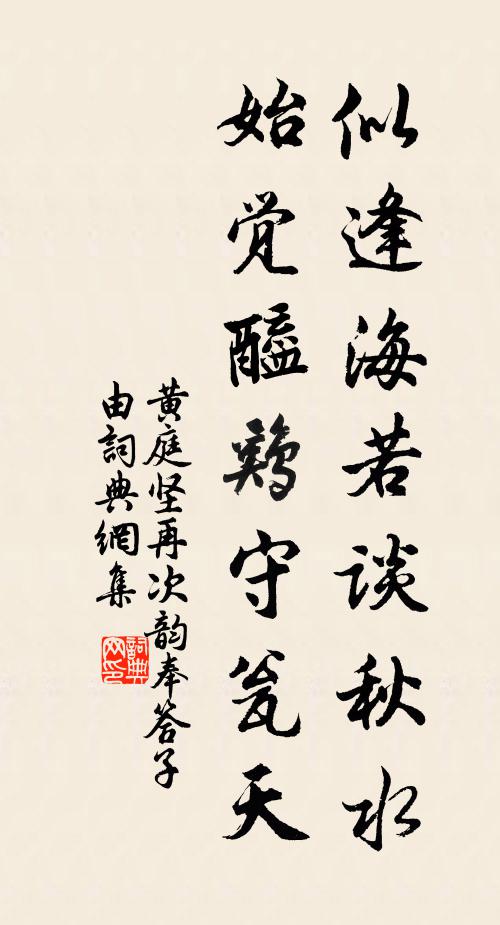 似逢海若谈秋水
始觉醯鸡守瓮天
黄庭坚再次韵奉答子
由詞典網集
詞典网印